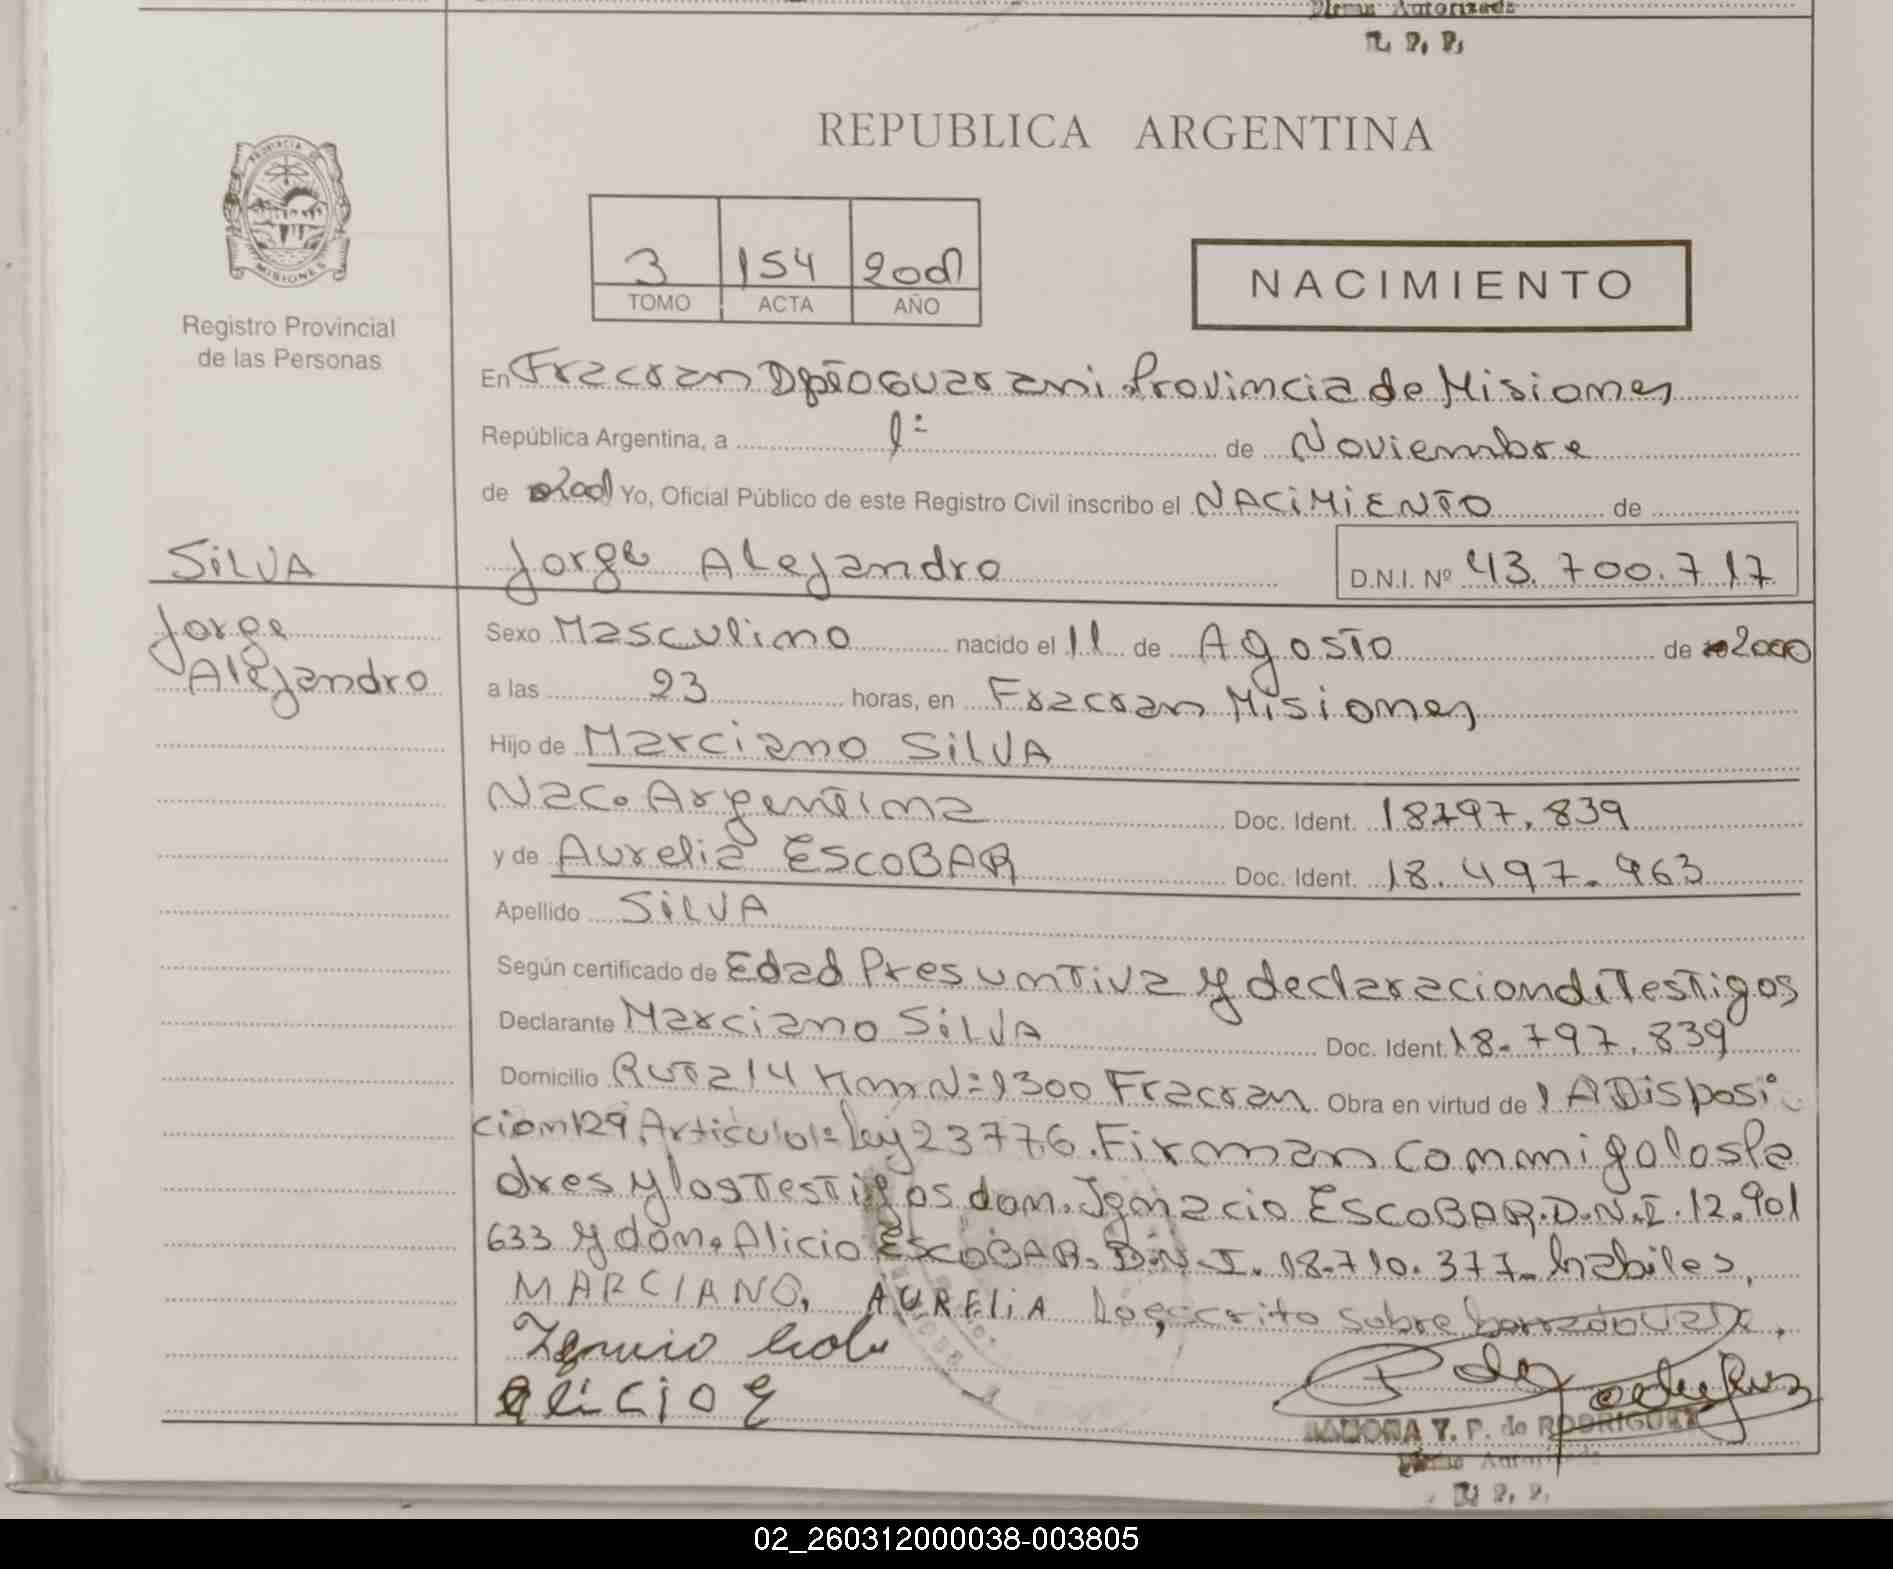 Firma Autorizada
R. P. P.
REPUBLICA ARGENTINA
PROVINCIA DE
MISIONES
3 154 2001
TOMO ACTA AÑO
NACIMIENTO
Registro Provincial
de las Personas
En Fracran Dpto Guarani Provincia de Misiones
República Argentina, a 1º de Noviembre
de 2001 Yo, Oficial Público de este Registro Civil inscribo el NACIMIENTO de
SILVA
Jorge Alejandro D.N.I. Nº 43.700.717
Jorge
Alejandro
Sexo Masculino nacido el 11 de Agosto de 2000
a las 23 horas, en Fracran Misiones
Hijo de Marciano SILVA
Nac. Argentina Doc. Ident. 18797.839
y de Aurelia ESCOBAR Doc. Ident. 18.497.963
Apellido SILVA
Según certificado de Edad Presuntiva y declaracion di Testigos
Declarante Marciano SILVA Doc. Ident. 18.797.839
Domicilio Ruta 14 Km Nº 1300 Fracran. Obra en virtud de 1 A Disposi
cion 129 Articulo 1º Ley 23776. Firman conmigo los Pa
dres y los Testigos don. Ignacio ESCOBAR. D.N.I. 12.901
633 y don. Alicio ESCOBAR. D.N.I. 18.710.377. habiles,
MARCIANO, AURELIA Lo escrito sobre borrado vale.
Alicio E
T. P. de RODRIGUEZ
Firma Autorizada
R. P. P.
02_260312000038-003805